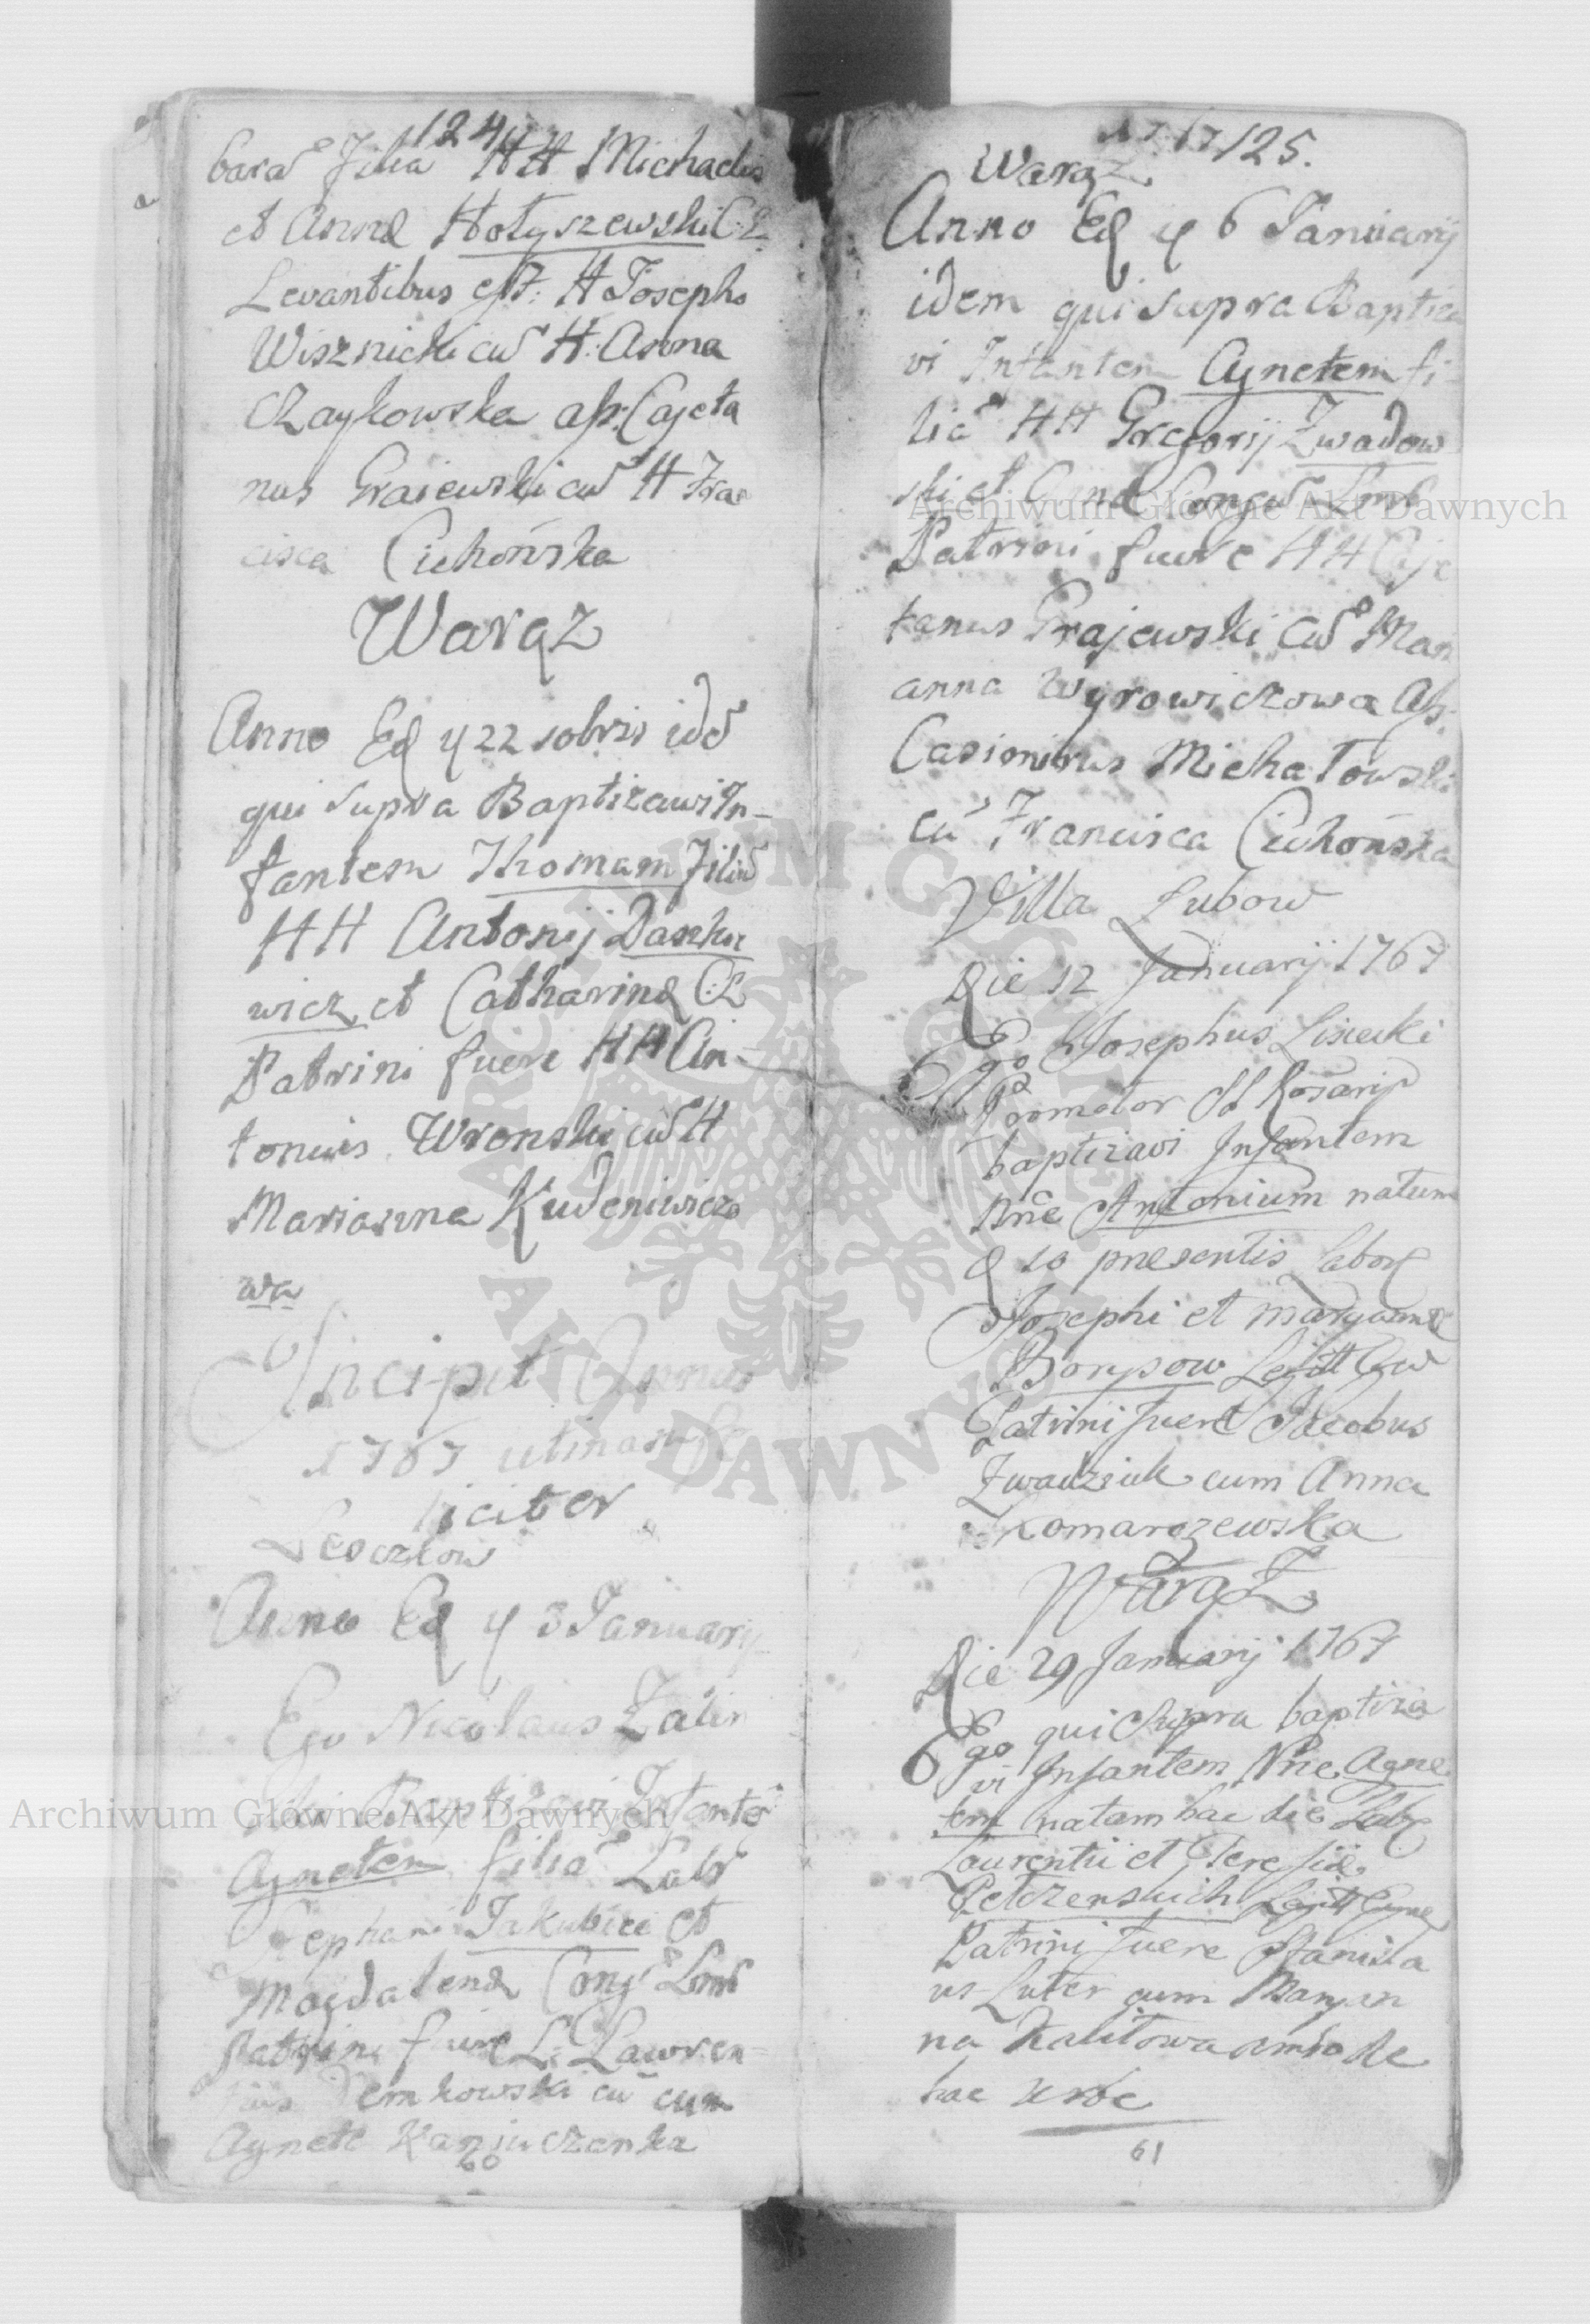 124
bara Filia HH Michaelis
et Annæ Hołyszewski C:L
Levantibus est: H Josepho
Wisznicki cu H: Anna
Czaykowska ass: Cajeta
nus Graiewski cu H Fran
cisca Cichońska
Warąz
Anno Eod 22 10bris ide
qui supra Baptizawi In-
fantem Thomam Filiu
HH Antonij Daszke
wicz et Catharinæ C:L
Patrini fuere HH An-
tonius Wronski cu H
Marianna Kudeniwiczo
wa
Incipit Annus
1767 utinam fe
liciter
Leoczłow
Anno Eod 3 January
Ego Nicolaus Zalin
ski Baptizavi Infante
Agnetem filia Labr
Stephani Jakubici et
Magdalenæ Cong Lmb
Patrini fuere L: Lawren-
tius Demkowski cu cum
Agnete Kaniuczanka
60
1767 125.
Warąz
Anno Eod 6 January
idem qui supra Baptiza
vi Infantem Agnetem fi-
lia HH Gregorij Zwadow
ski et Annæ Congu Lmb
Patrini fuere HH Caje
tanus Grajewski cu Mari
anna Wyrowiczowa Ass:
Casimirus Michałowski
cu Francisca Cichońska
Villa Łubow
Die 12 Januarij 1767
Ego Josephus Lisiecki
Promotor SS Rosarij
baptizavi Infantem
Nne Antonium natum
d 10 præsentis Labor
Josephi et Maryannæ
Borysow Legitt Con
Patrini fuere Jacobus
Zwadziuk cum Anna
Komarczewska
Warąz
Die 29 Januarij 1767
Ego qui supra baptiza
vi Infantem Nne Agne
tem natam hac die Lab
Laurentii et Teresiæ
Pelczenskich Legitt
Patrini fuere Stanisla
us Luter cum Maryan
na Kalitowa ambo de
hac urbe
61
Archiwum Główne Akt Dawnych
Archiwum Główne Akt Dawnych
ARCHIWUM GŁÓWNE
AKT DAWNYCH